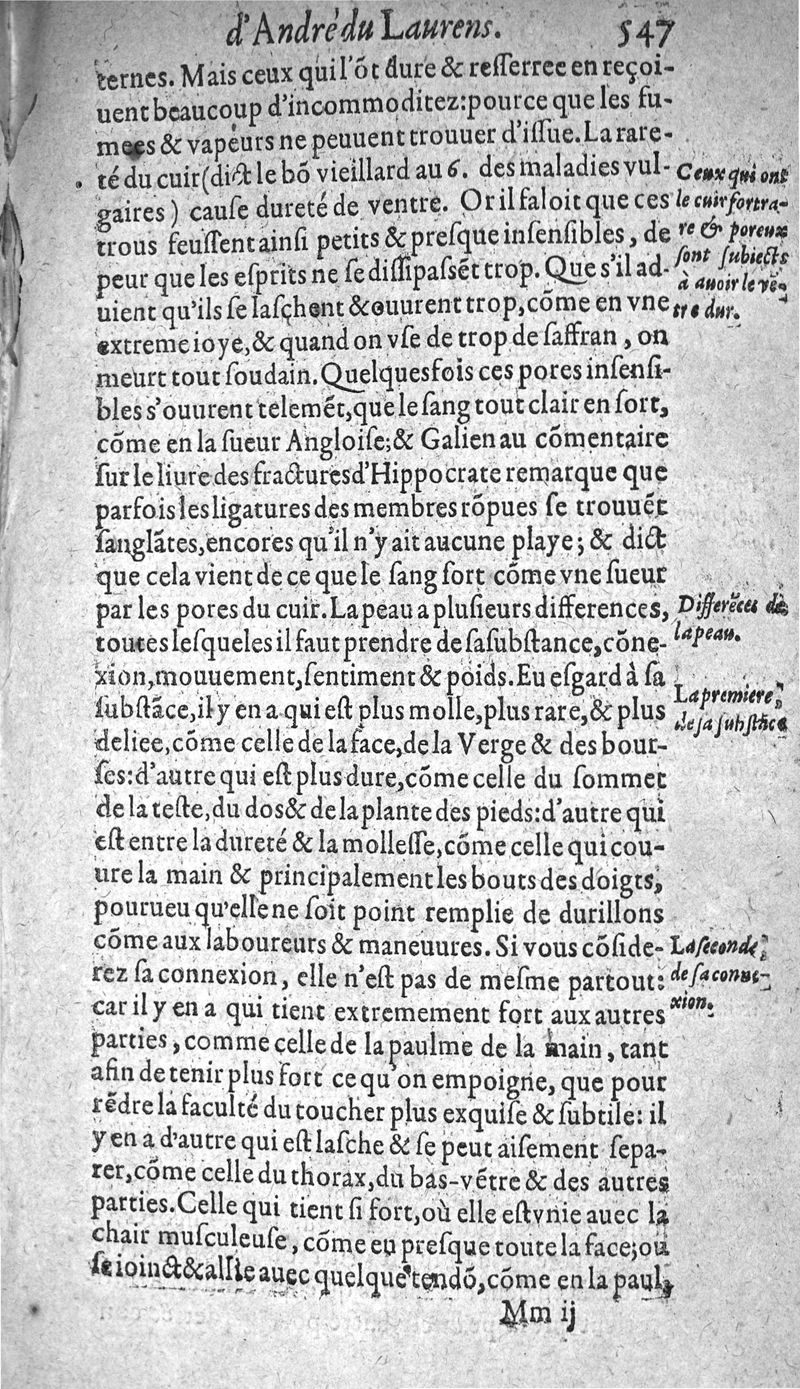 d'André du Laurens. 547
ternes. Mais ceux qui l'õt dure & resserree en reçoi-
uent beaucoup d'incommoditez: pource que les fu-
mees & vapeurs ne peuuent trouuer d'issue. La rare-
té du cuir (dict le bõ vieillard au 6. des maladies vul-
gaires) cause dureté de ventre. Or il faloit que ces
trous feussent ainsi petits & presque insensibles, de
peur que les esprits ne se dissipassẽt trop. Que s'il ad-
uient qu'ils se lasçhent & ouurent trop, cõme en vne
extreme ioye, & quand on vse de trop de saffran, on
meurt tout soudain. Quelquesfois ces pores insensi-
bles s'ouurent telemẽt, que le sang tout clair en sort,
cõme en la sueur Angloise; & Galien au cõmentaire
sur le liure des fractures d'Hippocrate remarque que
parfois les ligatures des membres rõpues se trouuẽt
sanglãtes, encores qu'il n'y ait aucune playe; & dict
que cela vient de ce que le sang sort cõme vne sueur
par les pores du cuir. La peau a plusieurs differences,
toutes lesqueles il faut prendre de sa substance, cõne-
xion, mouuement, sentiment & poids. Eu esgard à sa
substãce, il y en a qui est plus molle, plus rare, & plus
deliee, cõme celle de la face, de la Verge & des bour-
ses: d'autre qui est plus dure, cõme celle du sommet
de la teste, du dos & de la plante des pieds: d'autre qui
est entre la dureté & la mollesse, cõme celle qui cou-
ure la main & principalement les bouts des doigts,
pourueu qu'elle ne soit point remplie de durillons
cõme aux laboureurs & maneuures. Si vous cõside-
rez sa connexion, elle n'est pas de mesme partout:
car il y en a qui tient extremement fort aux autres
parties, comme celle de la paulme de la main, tant
afin de tenir plus fort ce qu'on empoigne, que pour
rẽdre la faculté du toucher plus exquise & subtile: il
y en a d'autre qui est lasche & se peut aisement sepa-
rer, cõme celle du thorax, du bas-vẽtre & des autres
parties. Celle qui tient si fort, où elle est vnie auec la
chair musculeuse, cõme en presque toute la face; ou
se ioinct & allie auec quelque tendõ, cõme en la paul,
Mm ij
Ceux qui ont
le cuir fort ra-
re & poreux
sont subiects
à auoir le vẽ-
tre dur.
Differẽces de
la peau.
La premiere,
de sa substãce
La seconde,
de sa conne-
xion.